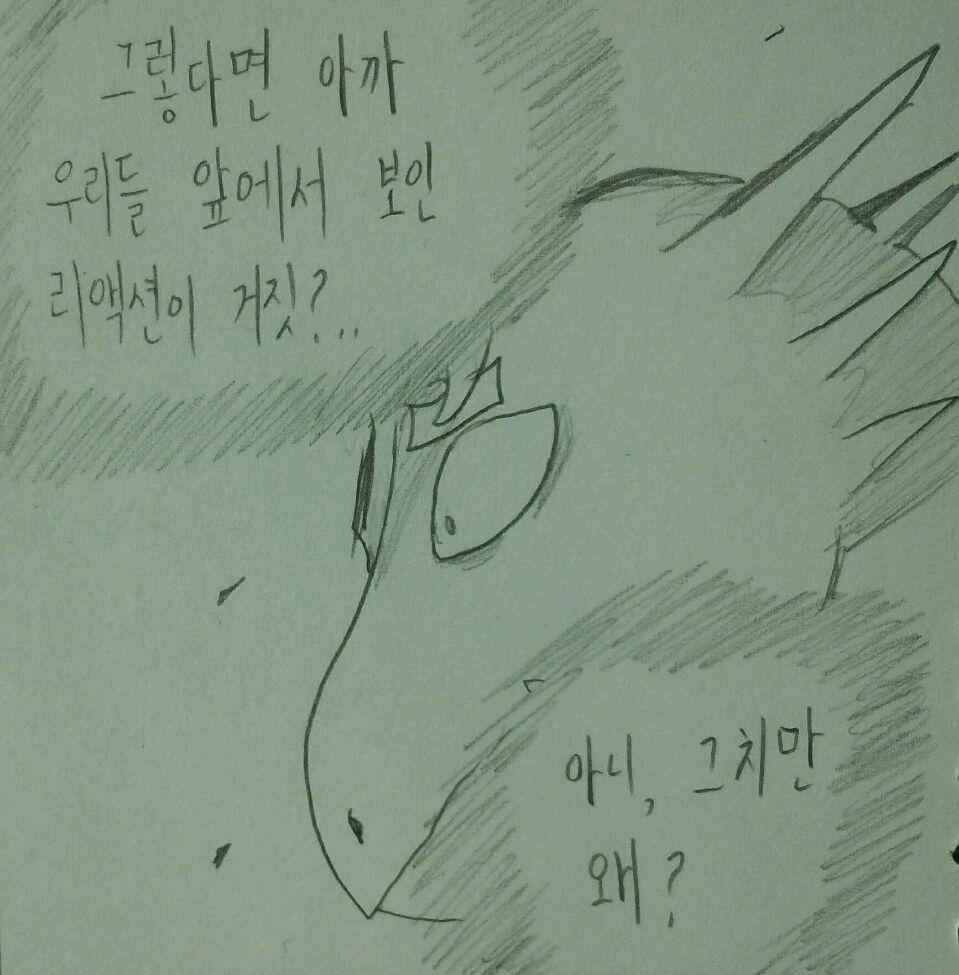 그렇다면 아까
우리들 앞에서 보인
리액션이 거짓?..
아니, 그치만
왜?